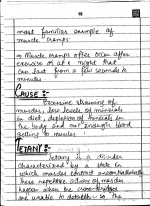 18
most familiar example of
muscle cramps.
⇒ Muscle cramps often occur after
exercise or at night that
can last from a few seconds to
minutes.
CAUSE :-
Excessive straining of
muscles, low levels of minerals
in diet, depletion of minerals in
the body and not enough blood
getting to muscles.
TETANY :-
Tetany is a disorder
characterized by a state in
which muscles contract uncontrollably.
These repetitive actions of muscles
happen when the cross-bridges
are unable to detach so the